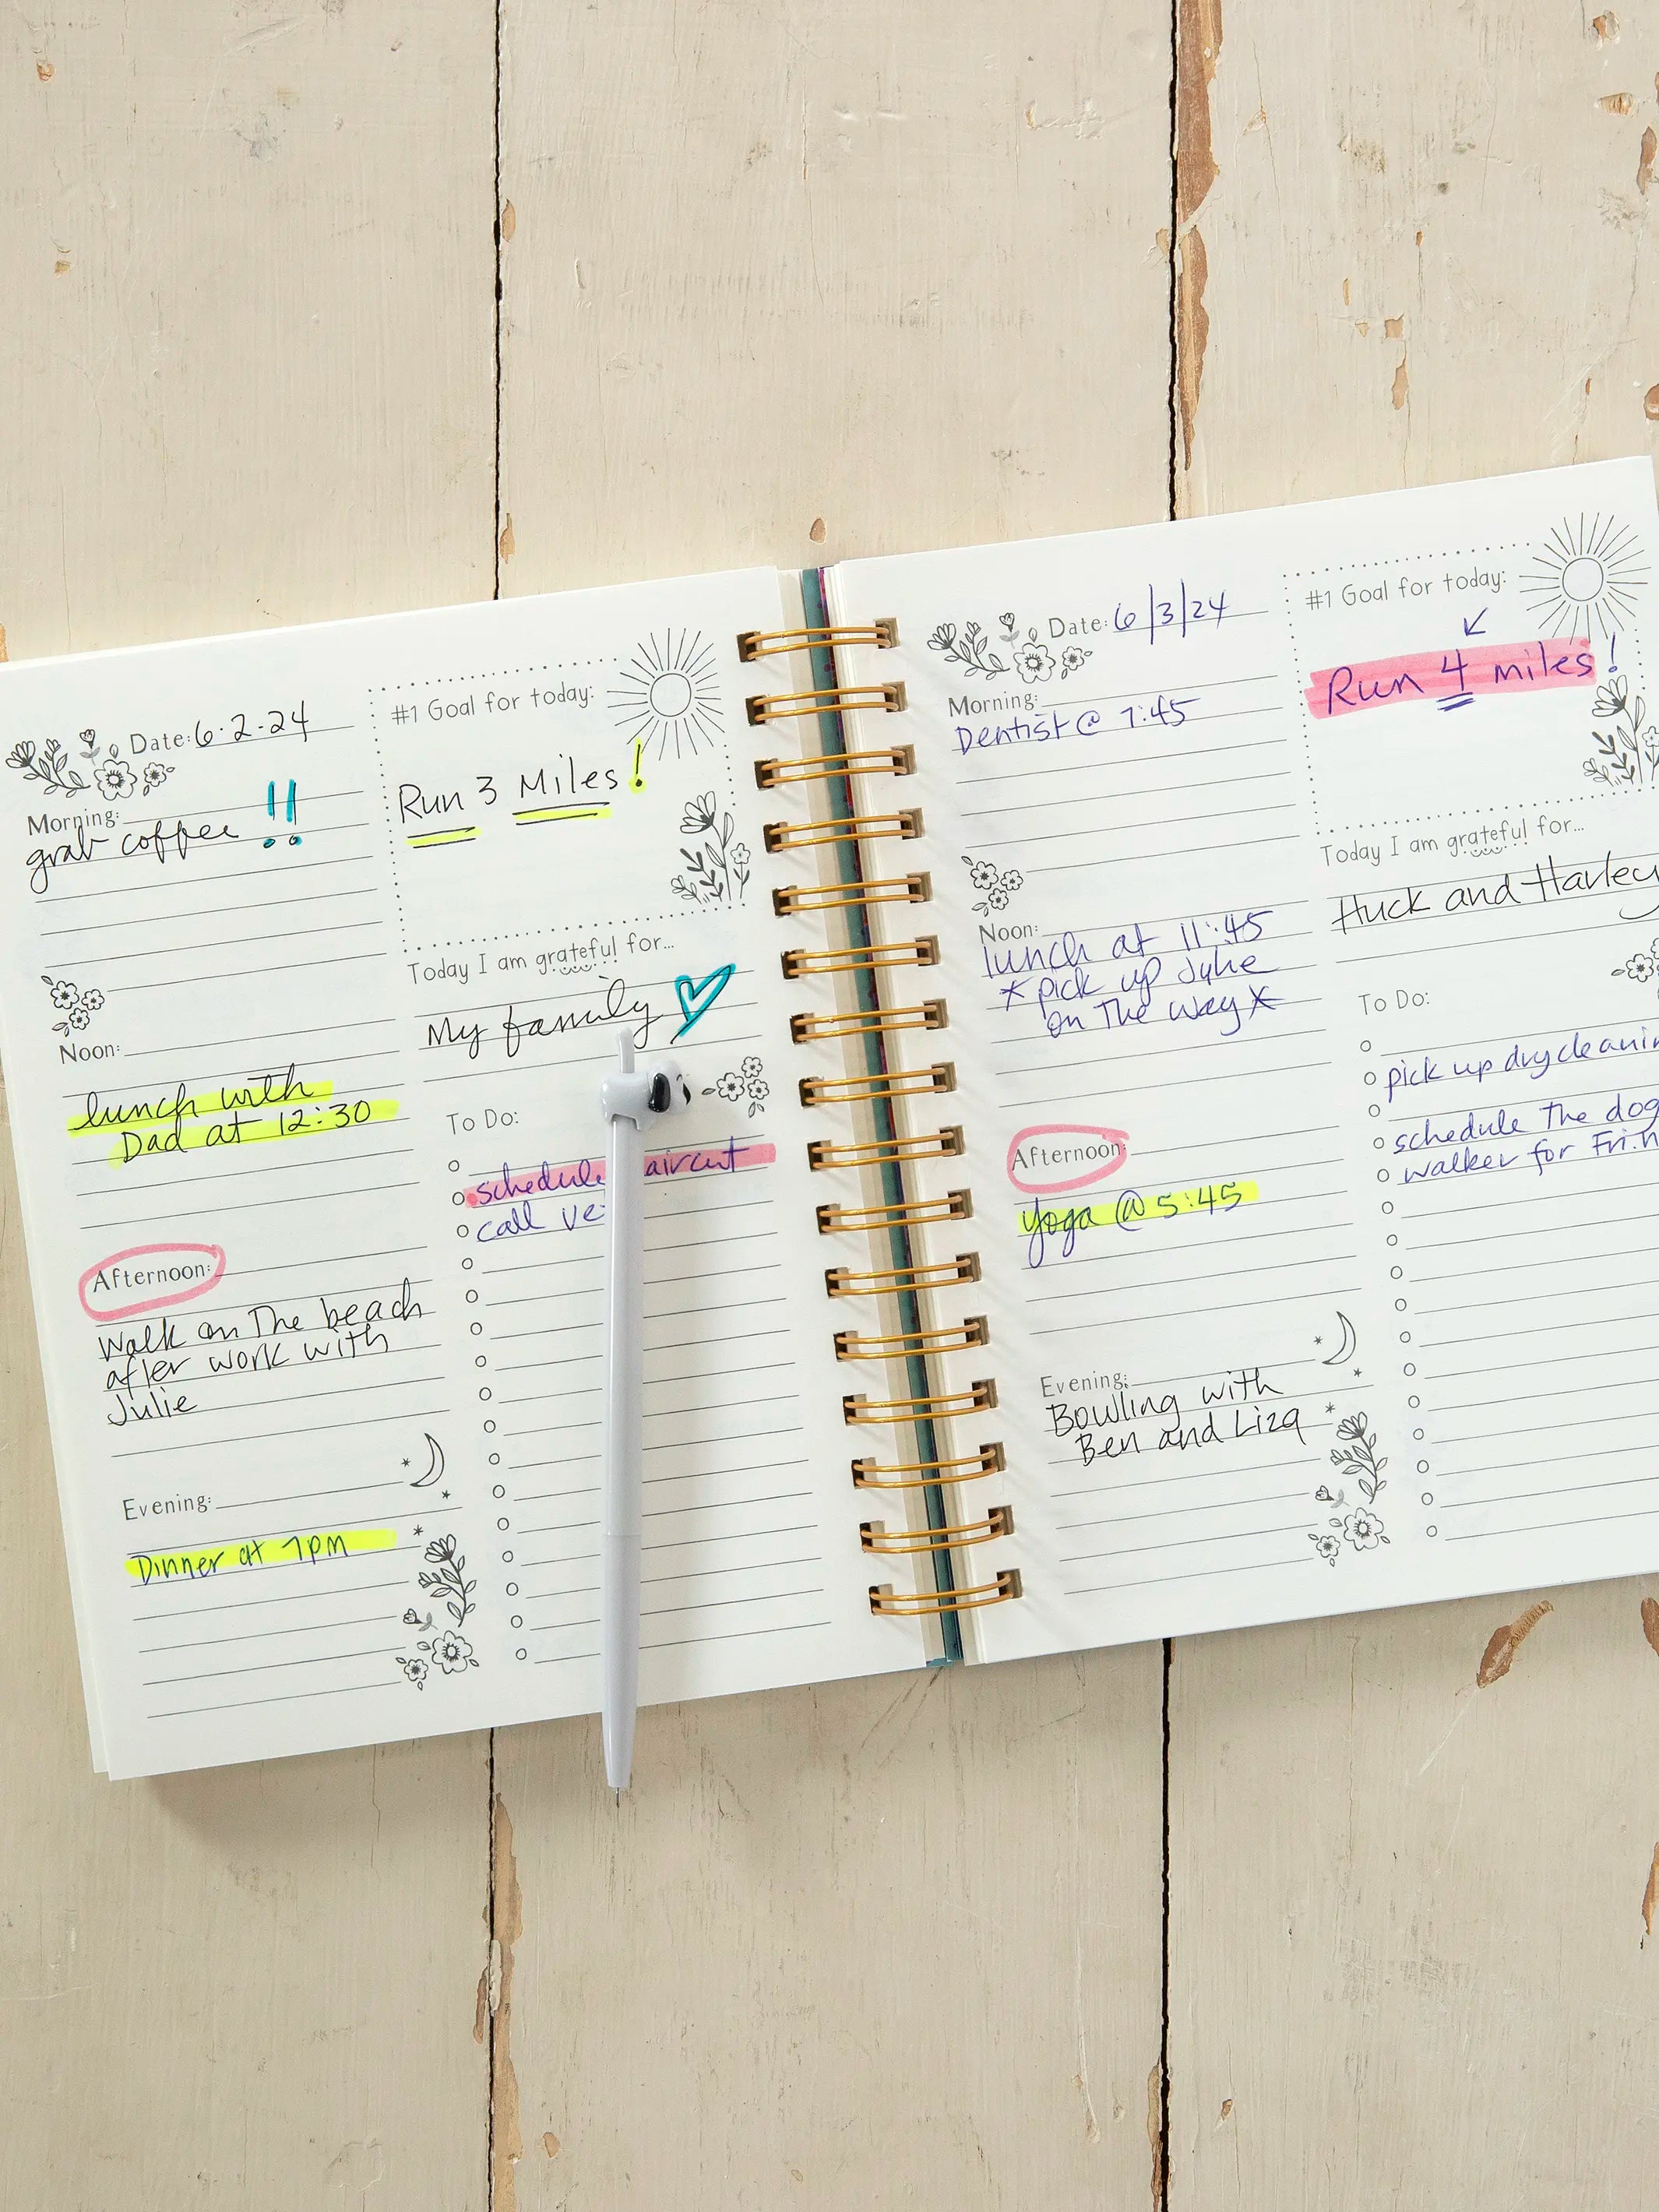 Date: 6-2-24
Morning:
grab coffee !!
Noon:
lunch with
Dad at 12:30
Afternoon:
Walk on The beach
after work with
Julie
Evening:
Dinner at 7pm
#1 Goal for today:
Run 3 Miles!
Today I am grateful for...
My family
To Do:
schedule aircut
call ve
Date: 6/3/24
Morning:
Dentist @ 7:45
Noon:
lunch at 11:45
*pick up Julie
on The way*
Afternoon:
Yoga @ 5:45
Evening:
Bowling with
Ben and Liza
#1 Goal for today:
Run 4 miles!
Today I am grateful for...
Huck and Harley
To Do:
pick up drycleanin
schedule the dog
walker for Fri.